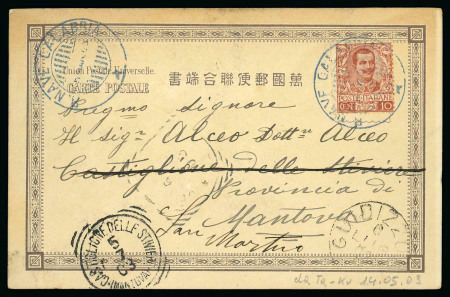 R. NAVE CALABRIA
R. NAVE CAL
Union Postale Universelle.
書端合聯便郵國萬
CARTE POSTALE
POSTE ITALIANE
CEN 10
Pregmo signore
Il Sigr Alceo Dottr Alceo
Castiglione delle Stiviere
Provincia di
Mantova
San Martino
CASTIGLIONE DELLE STIVIERE
(MANTOVA)
03
da Ta-Ku 14.05.03